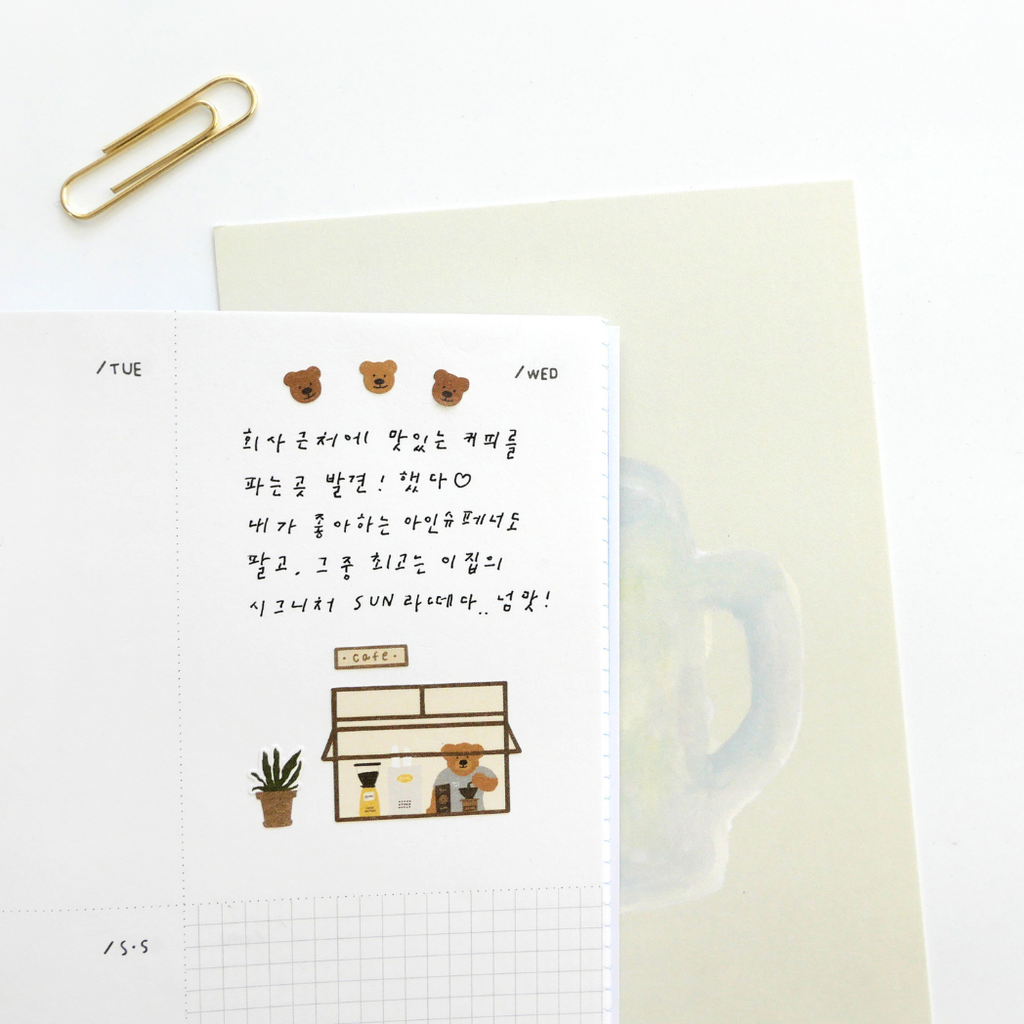 /TUE
/WED
회사 근처에 맛있는 커피를
파는곳 발견! 했다♡
내가 좋아하는 아인슈페너도
팔고. 그중 최고는 이집의
시그니처 SUN 라떼다.. 넘맛!
·cafe·
/S·S